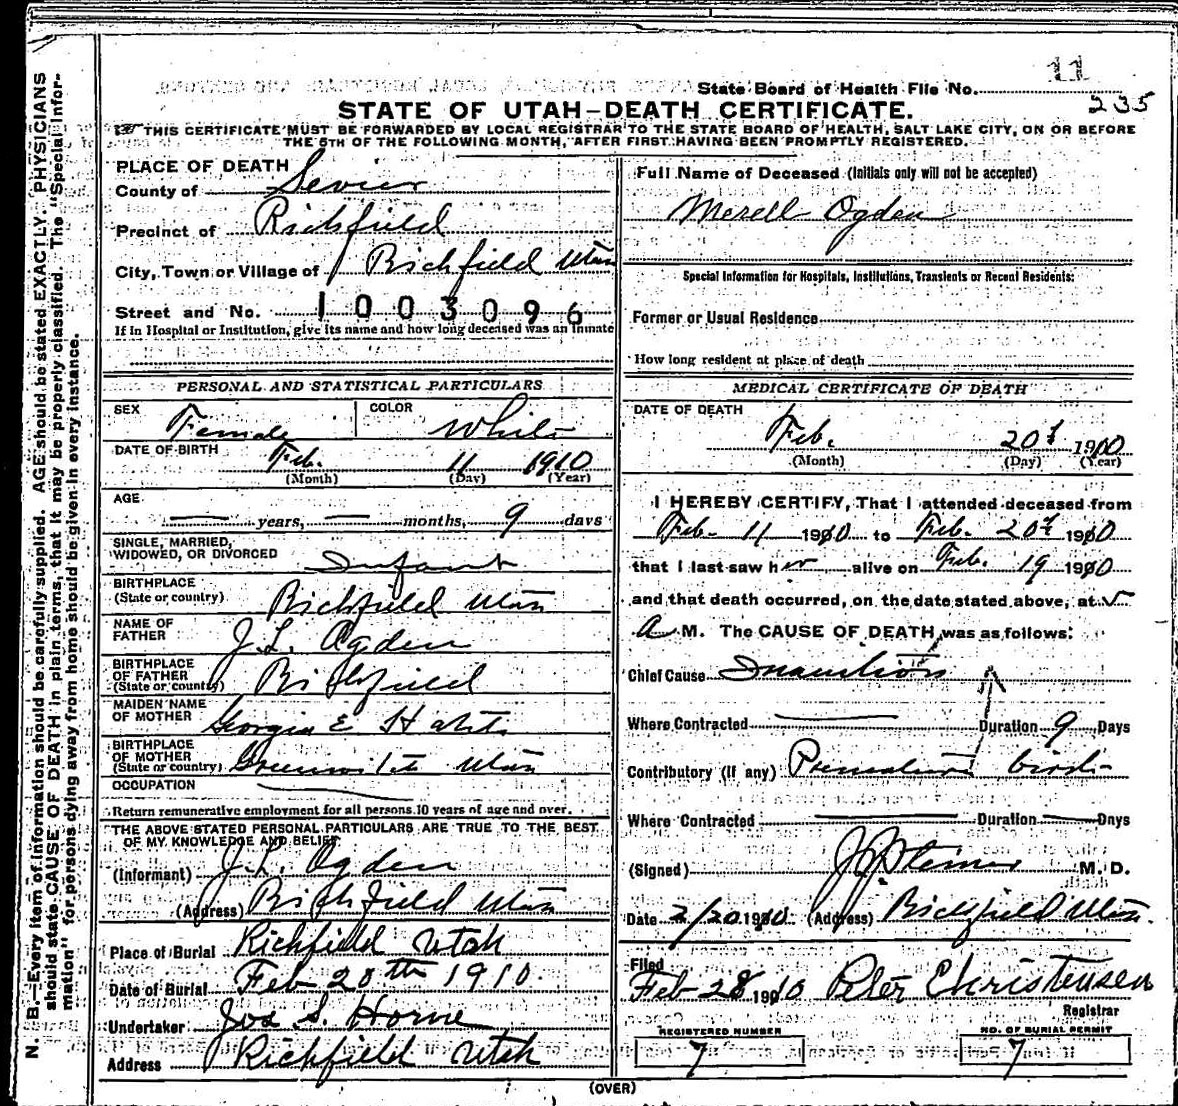 11
State Board of Health File No.
235
STATE OF UTAH—DEATH CERTIFICATE.
THIS CERTIFICATE MUST BE FORWARDED BY LOCAL REGISTRAR TO THE STATE BOARD OF HEALTH, SALT LAKE CITY, ON OR BEFORE
THE 5TH OF THE FOLLOWING MONTH, AFTER FIRST HAVING BEEN PROMPTLY REGISTERED.
N. B.—Every item of information should be carefully supplied. AGE should be stated EXACTLY. PHYSICIANS
should state CAUSE OF DEATH in plain terms, that it may be properly classified. The "Special Infor-
mation" for persons dying away from home should be given in every instance.
PLACE OF DEATH
County of Sevier
Precinct of Richfield
City, Town or Village of Richfield Utah
Street and No. 1003096
If in Hospital or Institution, give its name and how long deceased was an Inmate
PERSONAL AND STATISTICAL PARTICULARS
SEX Female COLOR White
DATE OF BIRTH Feb. 11 1910
(Month) (Day) (Year)
AGE
— years, — months, 9 days
SINGLE, MARRIED,
WIDOWED, OR DIVORCED Infant
BIRTHPLACE
(State or country) Richfield Utah
NAME OF
FATHER J. L. Ogden
BIRTHPLACE
OF FATHER
(State or country) Richfield
MAIDEN NAME
OF MOTHER Georgia E
BIRTHPLACE
OF MOTHER
(State or country) Greenwich Utah
OCCUPATION
Return remunerative employment for all persons 10 years of age and over.
THE ABOVE STATED PERSONAL PARTICULARS ARE TRUE TO THE BEST
OF MY KNOWLEDGE AND BELIEF
(Informant) J. L. Ogden
(Address) Richfield Utah
Place of Burial Richfield Utah
Date of Burial Feb 20th 1910.
Undertaker Jos S. Horne
Address Richfield Utah
Full Name of Deceased (Initials only will not be accepted)
Merell Ogden
Special Information for Hospitals, Institutions, Transients or Recent Residents:
Former or Usual Residence
How long resident at place of death
MEDICAL CERTIFICATE OF DEATH
DATE OF DEATH
Feb. 20th 1910
(Month) (Day) (Year)
I HEREBY CERTIFY, That I attended deceased from
Feb. 11 1910 to Feb. 20th 1910
that I last saw her alive on Feb. 19 1910
and that death occurred, on the date stated above, at
A M. The CAUSE OF DEATH was as follows:
Chief Cause Inanition
Where Contracted — Duration 9 Days
Contributory (if any) Premature birth
Where Contracted — Duration — Days
(Signed) J. J. Steiner M. D.
Date 2/20 1910 (Address) Richfield Utah.
Filed
Feb 28 1910 Peter Christensen
Registrar
REGISTERED NUMBER NO. OF BURIAL PERMIT
7 7
(OVER)